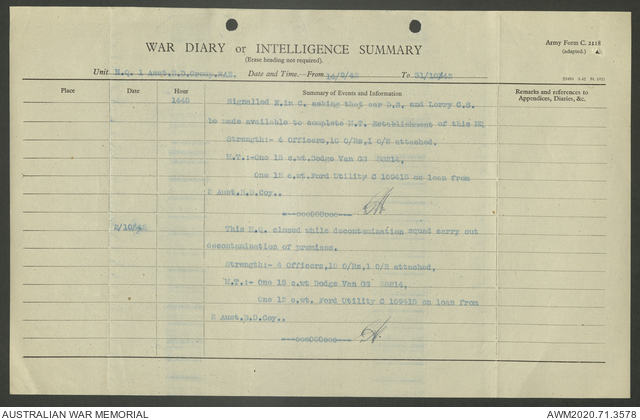 WAR DIARY or INTELLIGENCE SUMMARY
(Erase heading not required).
Army Form C. 2118
(adapted.)
Unit H.Q. 1 Aust.B.D.Group.RAE. Date and Time.—From 14/9/42 To 31/10/42
Place Date Hour Summary of Events and Information Remarks and references to Appendices, Diaries, &c.
1440 Signalled E.in C. asking that car D.S. and Lorry C.S.
be made available to complete M.T. Establishment of this HQ
Strength:- 4 Officers,10 O/Rs,1 O/R attached.
M.T.:-One 15 c.wt.Dodge Van
One 15 c.wt.Ford Utility C on loan from
2 Aust.B.D.Coy..
---ooo000ooo---
2/10/42 This H.Q. closed while decontamination squad carry out
decontamination of premises.
Strength:- 4 Officers,10 O/Rs,1 O/R attached,
M.T.:- One 15 c.wt Dodge Van
One 15 c.wt. Ford Utility C on loan from
2 Aust.B.D.Coy..
---ooo000ooo---
AUSTRALIAN WAR MEMORIAL AWM2020.71.3578